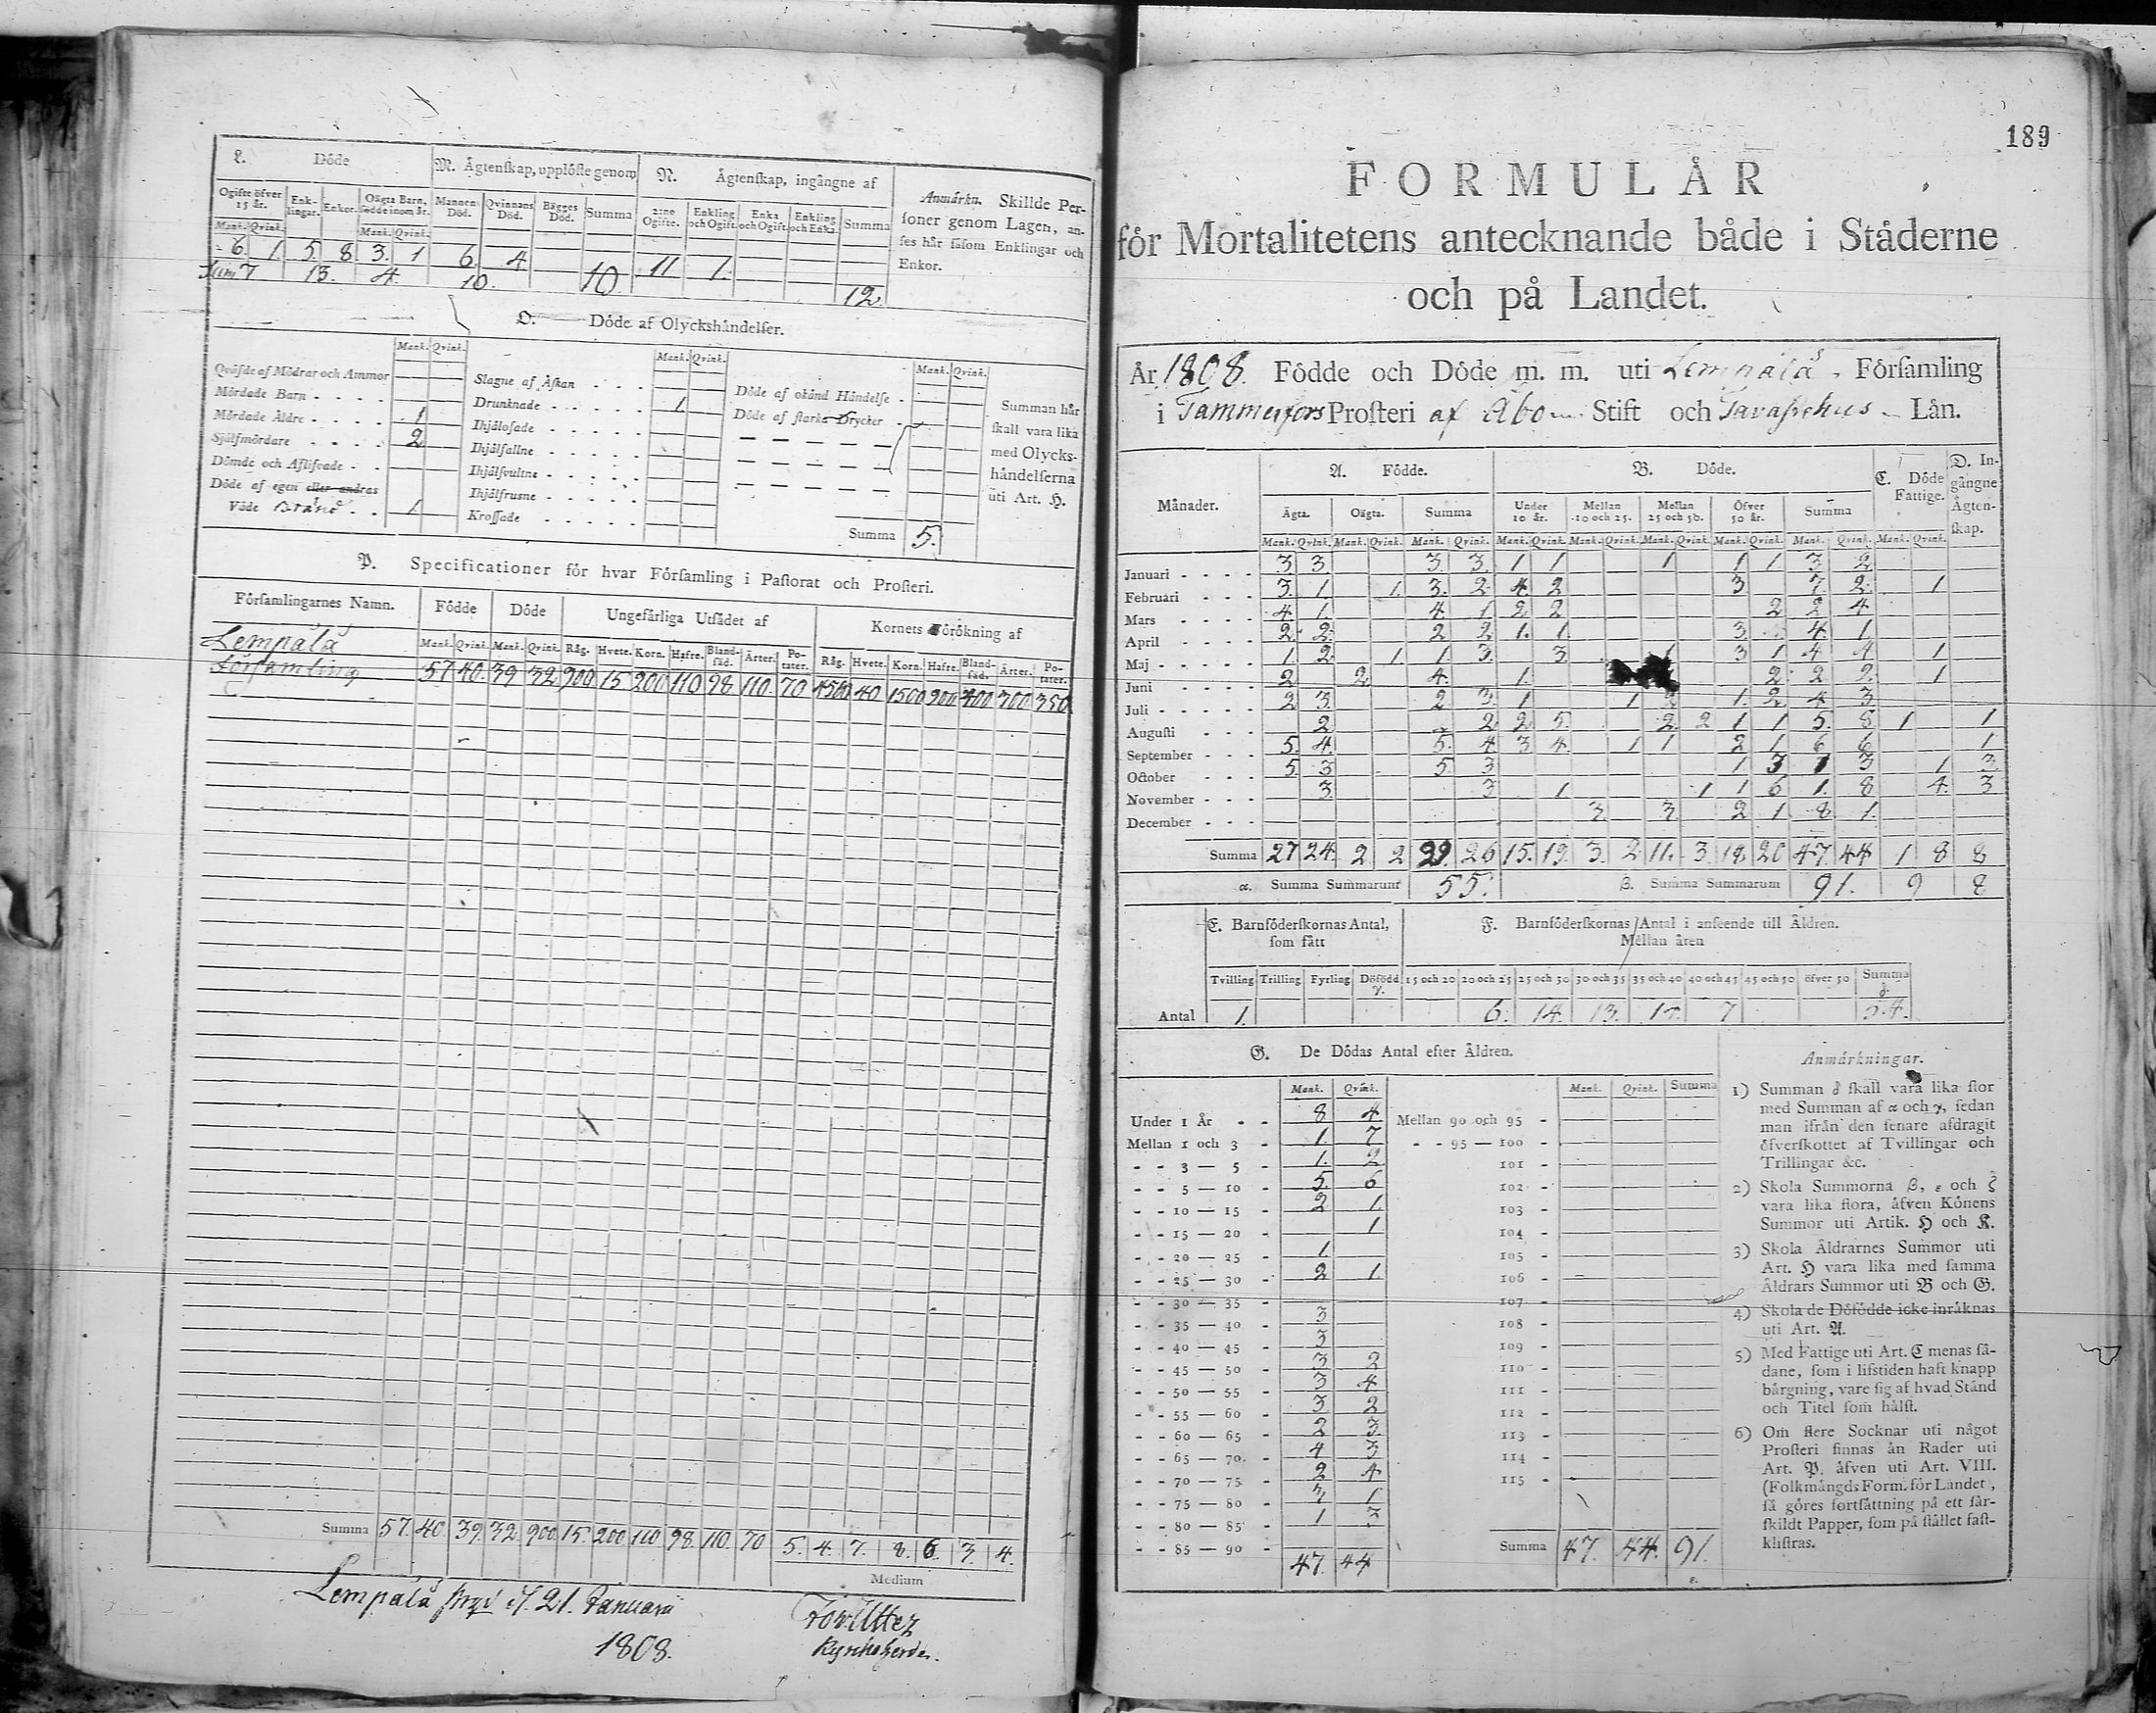 L. Döde
M. Ägtenskap, upplöste genom
N. Ägtenskap, ingångne af
Anmärkn. Skillde Personer genom Lagen, anses här såsom Enklingar och Enkor.
Ogifte öfver 15 år. Enklingar. Enkor. Oägta Barn, födde inom år. Mannens Död. Qvinnans Död. Bägges Död. Summa 2:ne Ogifte. Enkling och Ogift. Enka och Ogift. Enkling och Enka. Summa
Mank. Qvink. Mank. Qvink.
6. 1 5 8 3. 1 6 4 10 11 1. 12
Sum 7 13. 4. 10.
O. Döde af Olyckshändelser.
Mank. Qvink. Mank. Qvink. Mank. Qvink.
Qväfde af Mödrar och Ammor
Mördade Barn
Mördade Äldre 1
Själfmördare 2
Dömde och Aflifvade
Döde af egen eller andras
Våde Bränd 1
Slagne af Åskan
Drunknade 1
Ihjälosade
Ihjälfallne
Ihjälsvultne
Ihjälfrusne
Krossade
Döde af okänd Händelse
Döde af starka Drycker
Summan här skall vara lika med Olyckshändelserna uti Art. H.
Summa 5.
P. Specificationer för hvar Församling i Pastorat och Prosteri.
Församlingarnes Namn. Födde Döde Ungefärliga Utsädet af Kornets Förökning af
Mank. Qvink. Mank. Qvink. Råg. Hvete. Korn. Hafre. Blandsäd. Ärter. Potater. Råg. Hvete. Korn. Hafre. Blandsäd. Ärter. Potater.
Lempälä
Församling 57 40. 39 32 900 15 200 110 98 110. 70 4500 40 1500 900 400 300 350
Summa 57. 40. 39. 32 900 15. 200 110 98. 110. 70 5. 4. 7. 8. 6. 3. 4.
Medium
Lempälä d. 21. Januarii
1808.
Kyrkoherde.
189
FORMULÄR
för Mortalitetens antecknande både i Städerne
och på Landet.
År 1808. Födde och Döde m. m. uti Lempälä Församling
i Tammerfors Prosteri af Åbo Stift och Tavastehus Län.
Månader. A. Födde. B. Döde. C. Döde Fattige. D. Ingångne Ägtenskap.
Ägta. Oägta. Summa Under 10 år. Mellan 10 och 25. Mellan 25 och 50. Öfver 50 år. Summa
Mank. Qvink. Mank. Qvink. Mank. Qvink. Mank. Qvink. Mank. Qvink. Mank. Qvink. Mank. Qvink. Mank. Qvink. Mank. Qvink.
Januari 3 3 3. 3. 1 1 1 1 1 3 2
Februari 3. 1 1. 3. 2 4 2 3 7. 2. 1
Mars 4 1. 4. 1 2 2 2 2 4
April 2 2 2 2 1. 1 3 4 1
Maj 1. 2 1 1. 3. 3 1 3 1 4 4 1
Juni 2 2 4. 1. 2 2 2 1
Juli 2 3 2 3. 1 1 2 1. 2 4 3
Augusti 2 2 2 5 2 2 1 1 5. 8 1 1
September 5. 4. 5. 4 3 4. 1 1 2 1 6 6 1
October 5 3 5 3 1 3 1 3 1 3
November 3. 3 1 1 1 6 1. 8 4. 3
December 3 3 2 1 8 1.
Summa 27 24. 2 2 29. 26 15. 19. 3. 2 11. 3. 18 20 47. 44 1 8 8
α. Summa Summarum 55. β. Summa Summarum 91. 9 8
E. Barnföderskornas Antal, som fått
F. Barnföderskornas Antal i anseende till Åldren.
Mellan åren
Tvilling Trilling Fyrling Dödfödd γ. 15 och 20 20 och 25 25 och 30 30 och 35 35 och 40 40 och 45 45 och 50 öfver 50 Summa δ.
Antal 1. 6. 14. 13. 14. 7 54.
G. De Dödas Antal efter Åldren.
Mank. Qvink. Mank. Qvink. Summa
Under 1 År 8 4
Mellan 1 och 3 1. 7
3 — 5 1. 2
5 — 10 5. 6
10 — 15 2 1.
15 — 20 1
20 — 25 1
25 — 30 2 1.
30 — 35
35 — 40 3
40 — 45 3
45 — 50 3 2
50 — 55 3 4
55 — 60 3 2
60 — 65 2 3
65 — 70 4 3
70 — 75 2 4
75 — 80 3 1
80 — 85 1 3
85 — 90
47. 44
Mellan 90 och 95
95 — 100
101
102
103
104
105
106
107
108
109
110
111
112
113
114
115
Summa 47. 44. 91.
ε.
Anmärkningar.
1) Summan δ skall vara lika stor
med Summan af α och γ, sedan
man ifrån den senare afdragit
öfverskottet af Tvillingar och
Trillingar &c.
2) Skola Summorna β, ε och ζ
vara lika stora, äfven Könens
Summor uti Artik. H och K.
3) Skola Åldrarnes Summor uti
Art. H vara lika med samma
Åldrars Summor uti B och G.
4) Skola de Dödfödde icke inräknas
uti Art. A.
5) Med Fattige uti Art. C menas sådane,
som i lifstiden haft knapp
bärgning, vare sig af hvad Stånd
och Titel som hälst.
6) Om flere Socknar uti något
Prosteri finnas än Rader uti
Art. P. äfven uti Art. VIII.
(Folkmängds Form. för Landet,
så göres fortsättning på ett särskildt
Papper, som på stället fastklistras.